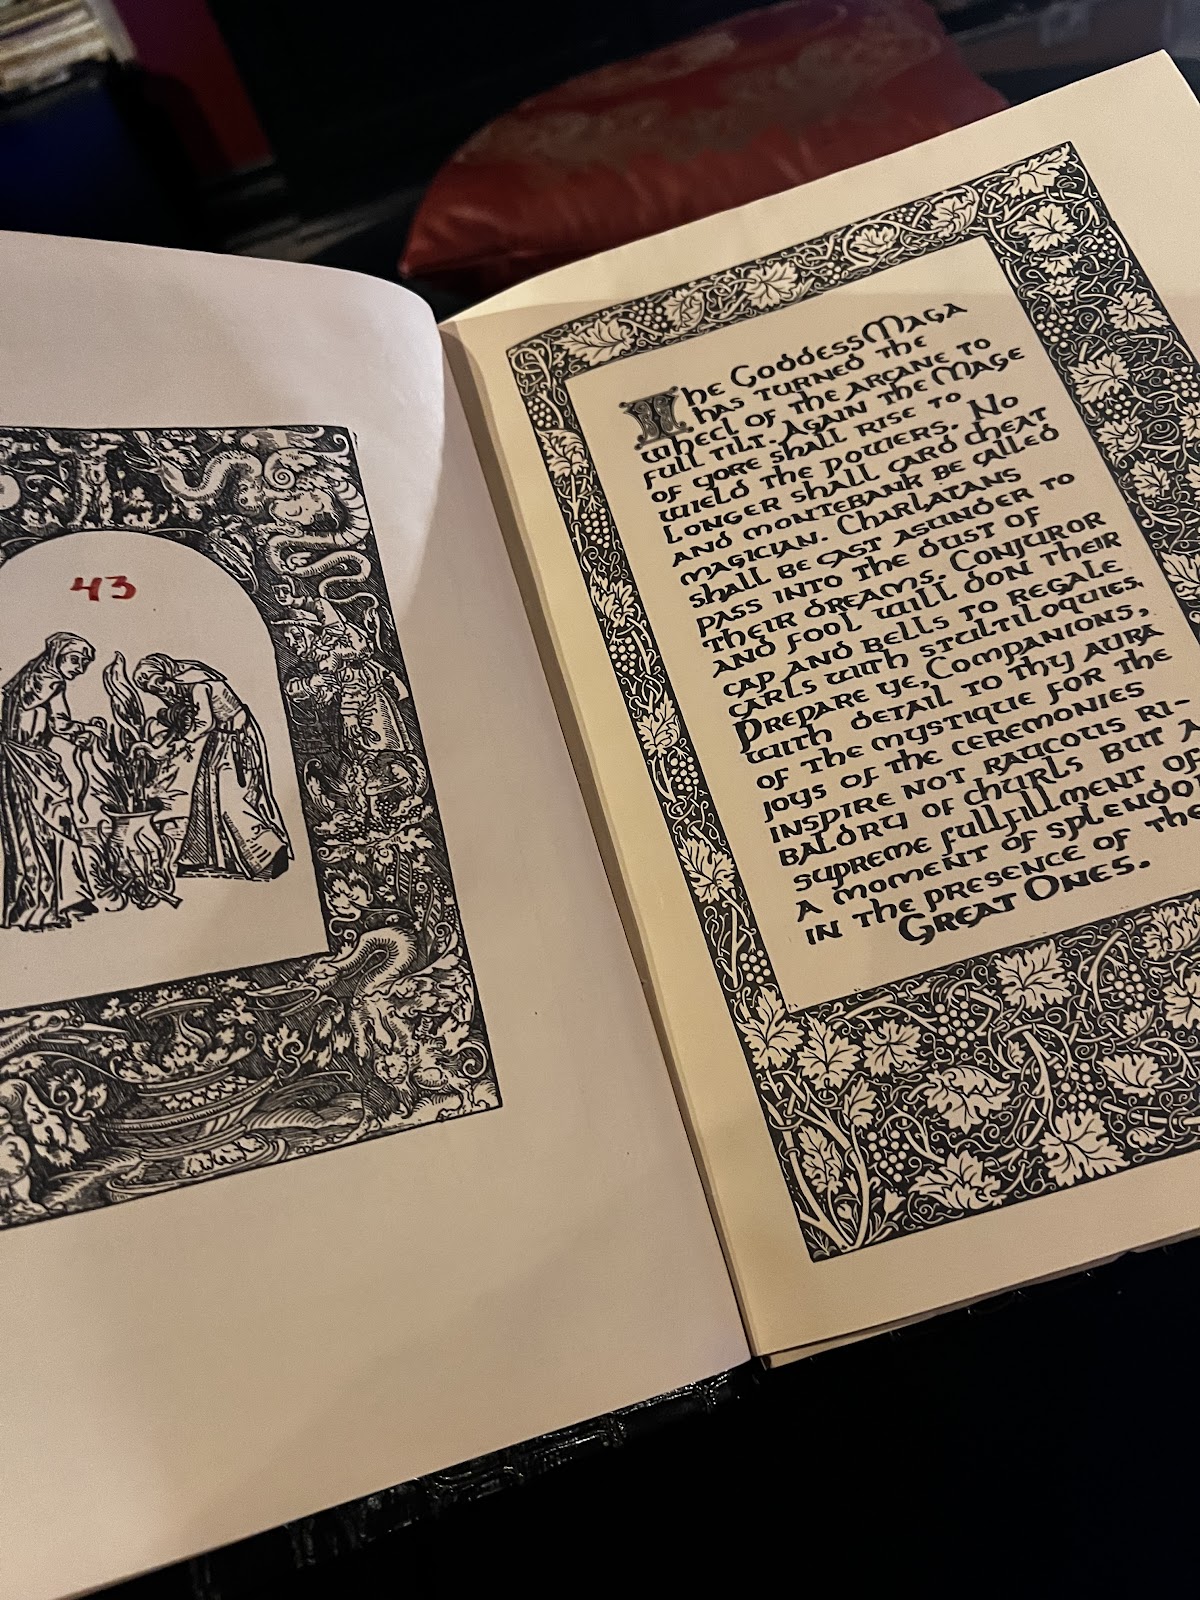 43
The Goddess Maga
has turned the
wheel of the arcane to
full tilt. Again the Mage
of yore shall rise to
wield the powers. No
longer shall card cheat
and montebank be called
magician. Charlatans
shall be cast asunder to
pass into the dust of
their dreams. Conjuror
and fool will don their
cap and bells to regale
carls with stultiloquies.
Prepare ye, Companions,
with detail to thy aura
of the mystique for the
joys of the ceremonies
inspire not raucous ri-
baldry of churls but a
supreme fullfillment of
a moment of splendor
in the presence of the
Great Ones.